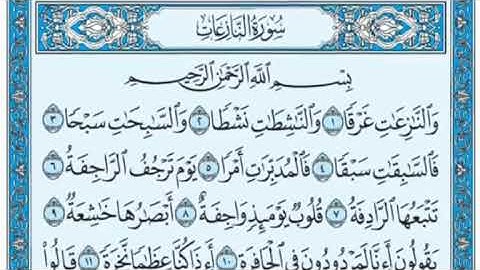 سُورَةُ النَّازِعَاتِ
بِسْمِ ٱللَّهِ ٱلرَّحْمَٰنِ ٱلرَّحِيمِ
وَٱلنَّٰزِعَٰتِ غَرْقًا ١ وَٱلنَّٰشِطَٰتِ نَشْطًا ٢ وَٱلسَّٰبِحَٰتِ سَبْحًا ٣
فَٱلسَّٰبِقَٰتِ سَبْقًا ٤ فَٱلْمُدَبِّرَٰتِ أَمْرًا ٥ يَوْمَ تَرْجُفُ ٱلرَّاجِفَةُ ٦
تَتْبَعُهَا ٱلرَّادِفَةُ ٧ قُلُوبٌ يَوْمَئِذٍ وَاجِفَةٌ ٨ أَبْصَٰرُهَا خَٰشِعَةٌ ٩
يَقُولُونَ أَءِنَّا لَمَرْدُودُونَ فِي ٱلْحَافِرَةِ ١٠ أَءِذَا كُنَّا عِظَٰمًا نَّخِرَةً ١١ قَالُوا۟